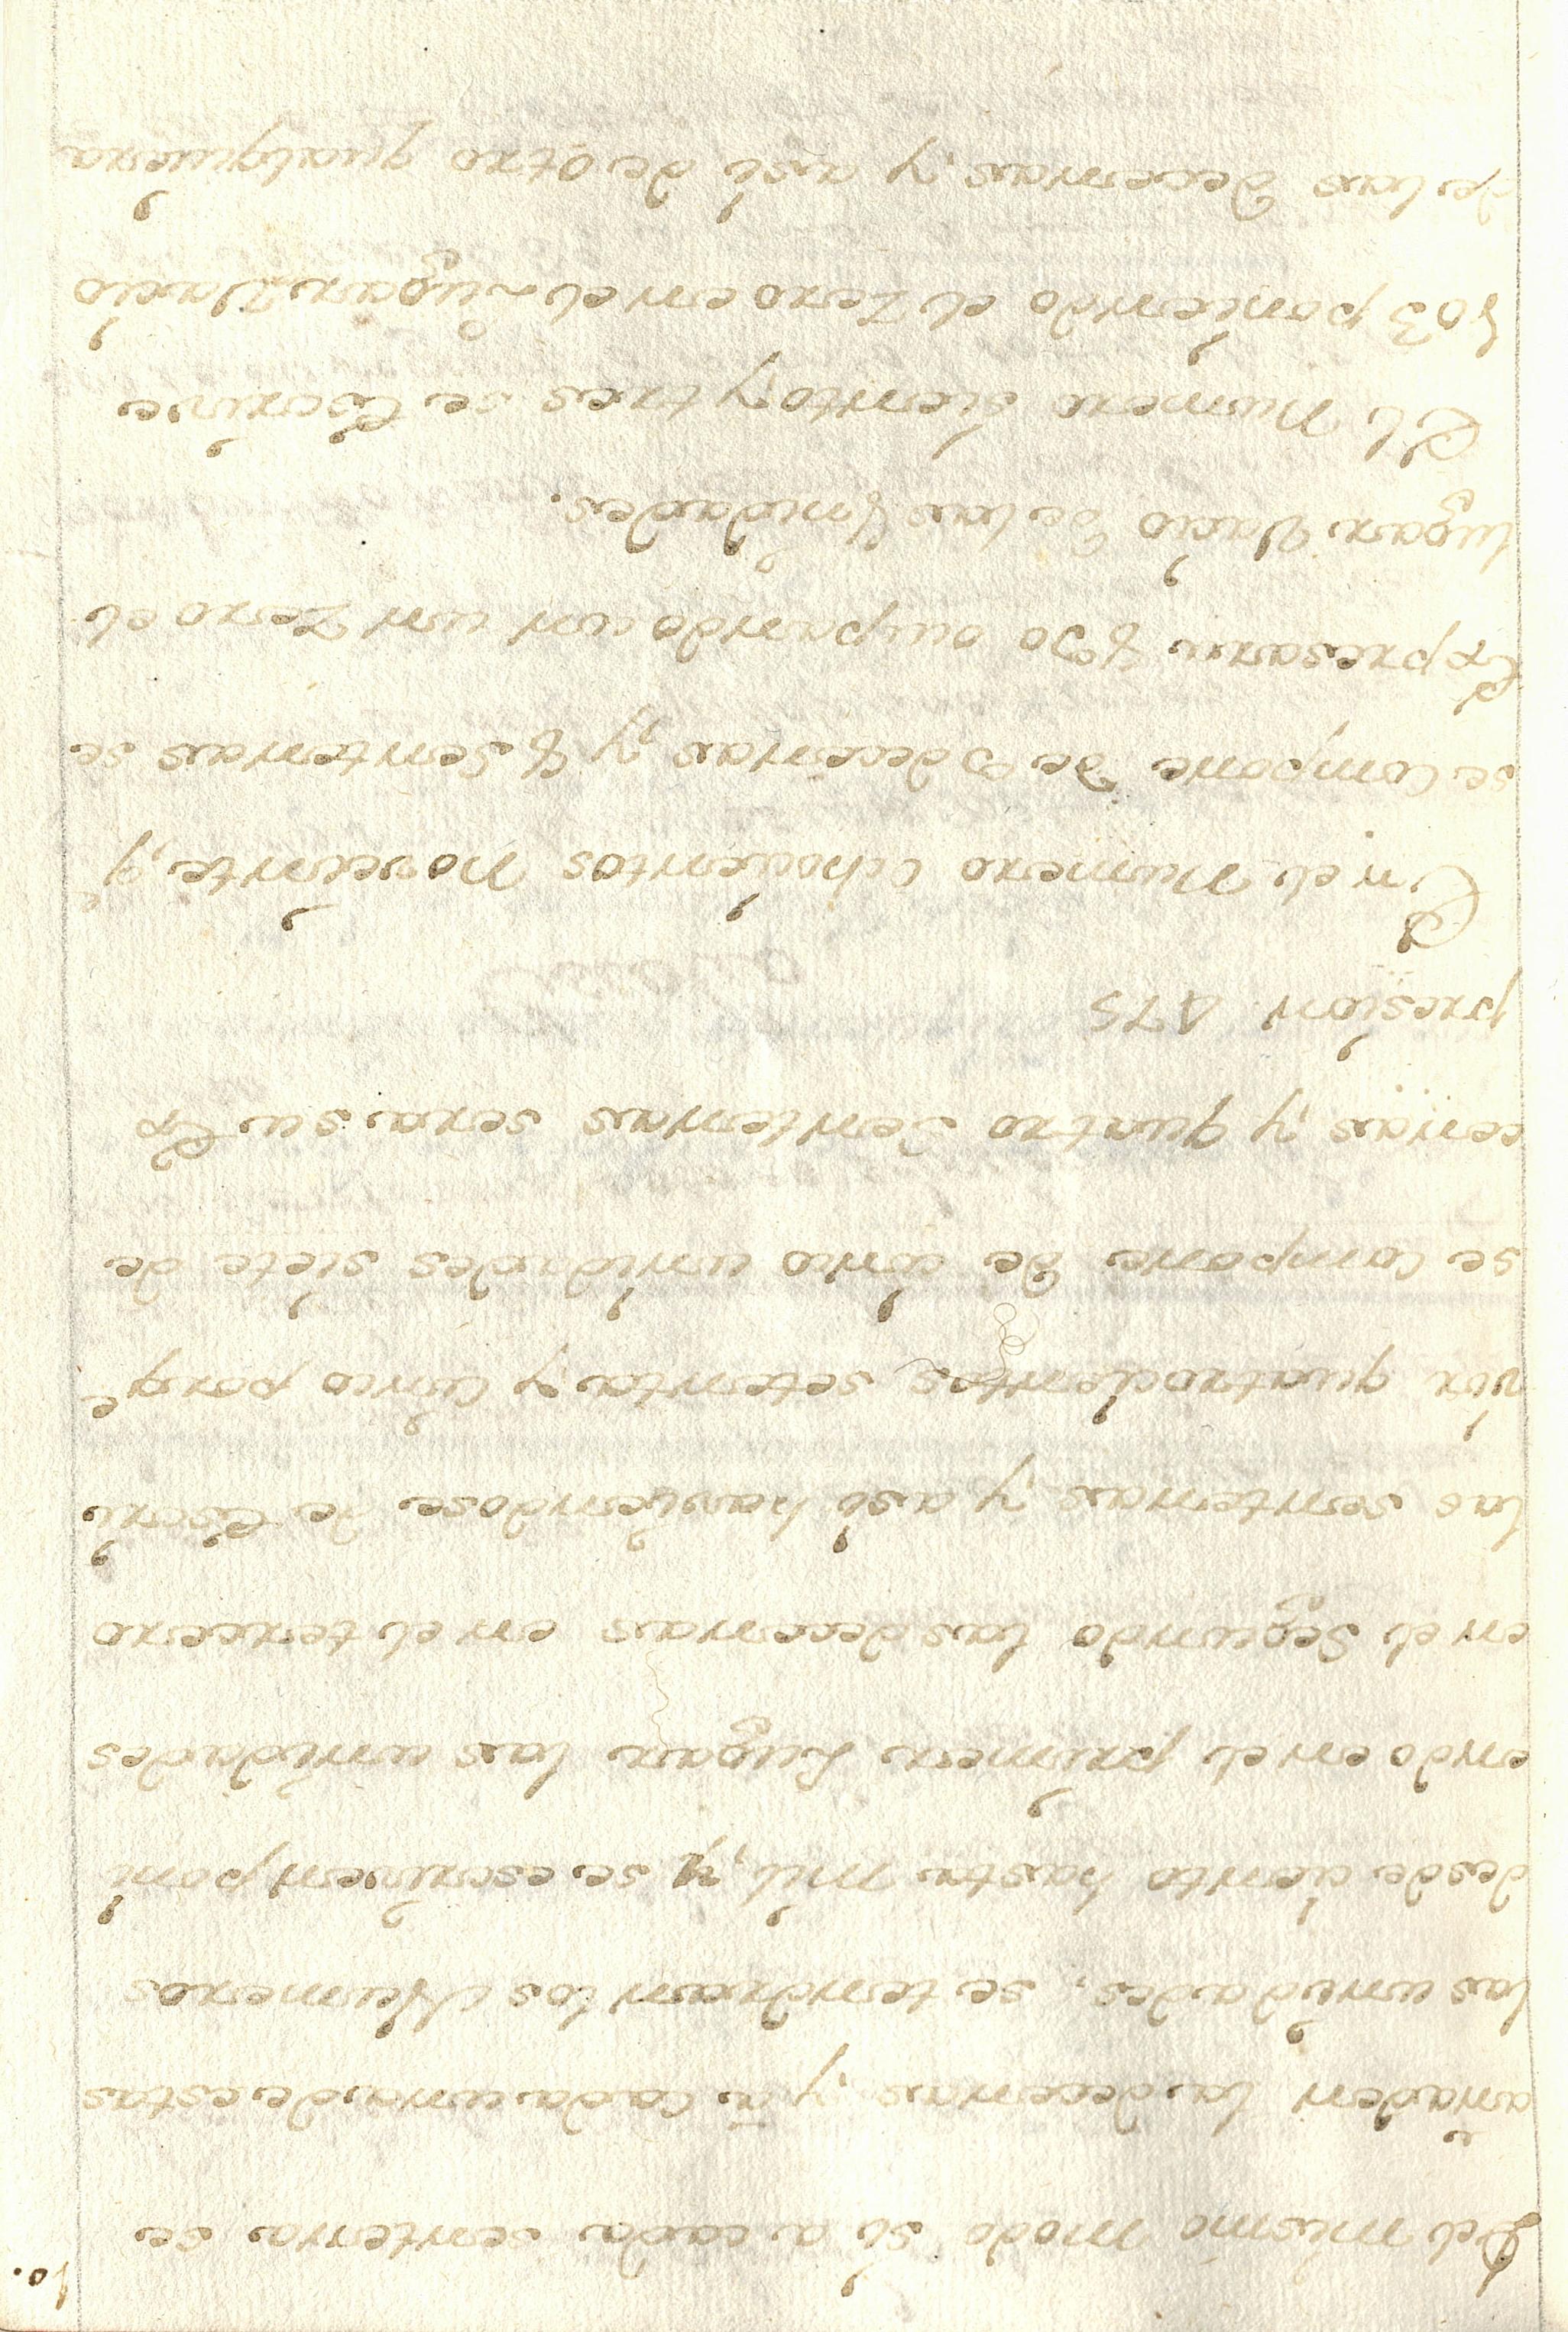 10.
Del mismo modo si a cada sentena se
añaden la decenas y à cada una de estas
las unidades, se tendran los Numeros
desde ciento hasta Mil, y se escriven poni
endo en el primer Lugar las unidades
en el Segundo las decenas en el tercero
las sentenas y asi haviendose de Escri
vir quatrocientos setenta y Cinco porq̃
se compone de cinco unidades siete de
cenas y quatro Sentenas sera su Ex
presion 475
En el Numero Ochocientos Noveinte, q̃
se Compone de 9 decenas y 8 Sentenas se
Expresara 890 ocupando un Zero el
lugar Vacio de las Vnidades.
El Numero Ciento y tres se Escrive
103 poniendo el Zero en el Lugar Vacio
de las decenas y asi de otro qualquiera